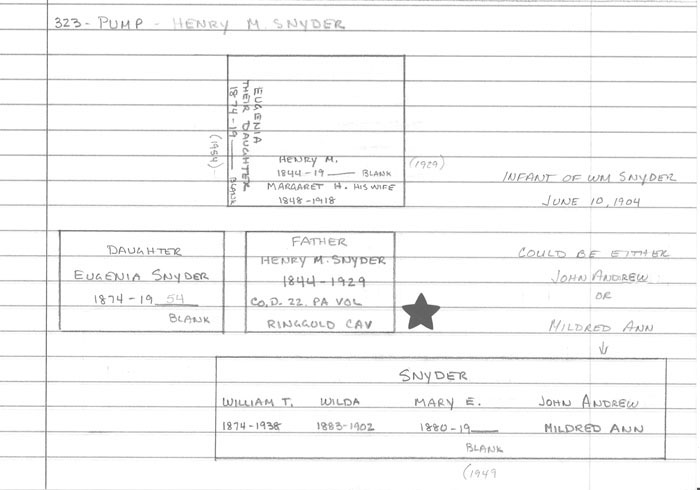 323 - PUMP - HENRY M. SNYDER
EUGENIA
THEIR DAUGHTER
1874-19 ___ BLANK
(1954)
HENRY M.
1844-19 ___ BLANK
(1929)
MARGARET H. HIS WIFE
1848-1918
INFANT OF WM SNYDER
JUNE 10, 1904
DAUGHTER
EUGENIA SNYDER
1874-19 54
BLANK
FATHER
HENRY M. SNYDER
1844-1929
CO. D. 22. PA VOL
RINGGOLD CAV
COULD BE EITHER
JOHN ANDREW
OR
MILDRED ANN
SNYDER
WILLIAM T. WILDA MARY E. JOHN ANDREW
1874-1938 1883-1902 1880-19 ___ MILDRED ANN
BLANK
(1949